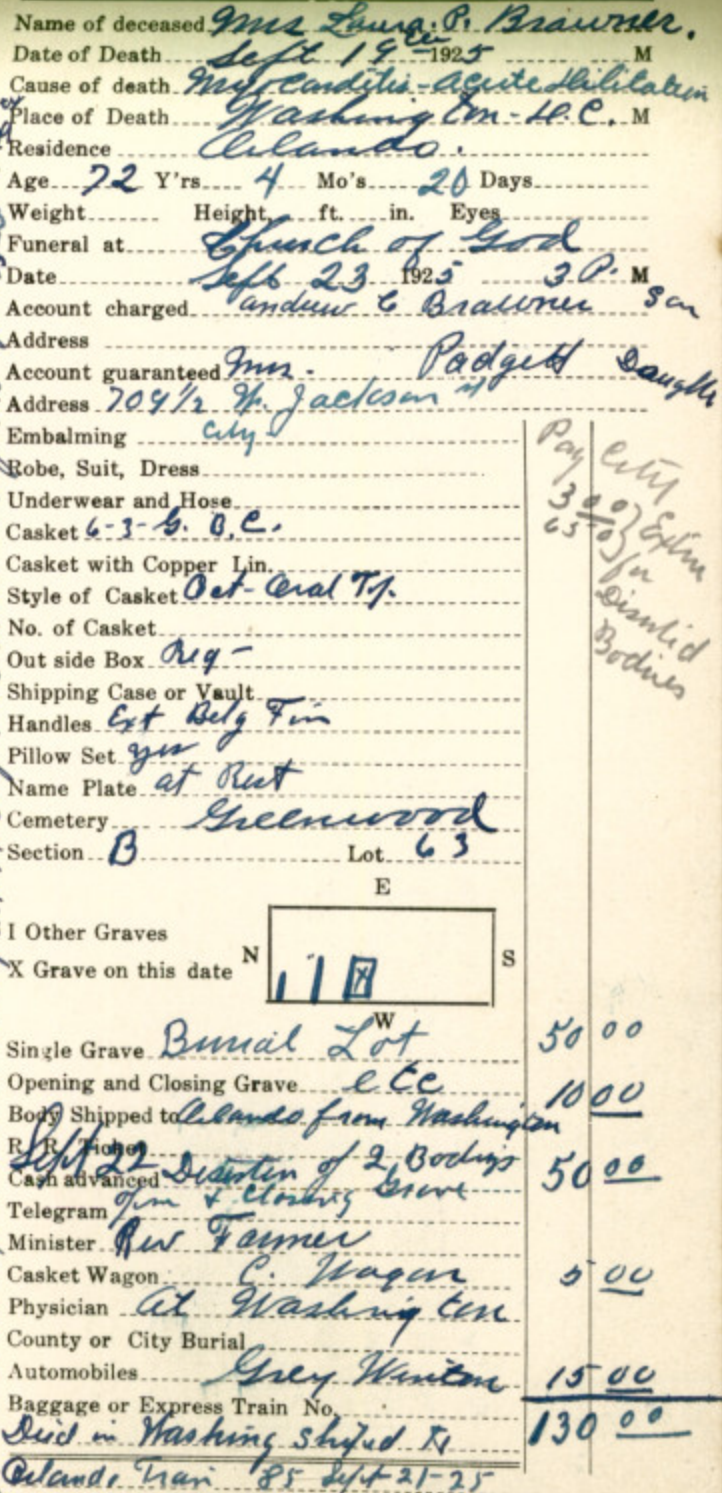 Name of deceased Mrs Laura. P. Brawner.
Date of Death Sept 19th 1925 M
Cause of death Myocarditis - acute Dilitation
Place of Death Washington - D.C. M
Residence Orlando.
Age 72 Y'rs 4 Mo's 20 Days
Weight Height ft. in. Eyes
Funeral at Church of God
Date Sept 23 1925 3 P. M
Account charged andrew C Brawner Son
Address
Account guaranteed Mrs. Padgett Daughter
Address 709 1/2 W. Jackson st
Embalming city
Robe, Suit, Dress
Underwear and Hose
Casket 6-3-G. B.C.
Casket with Copper Lin.
Style of Casket Oct-Oval Tp.
No. of Casket
Out side Box Reg -
Shipping Case or Vault
Handles Ext Belg Fin
Pillow Set yes
Name Plate at Rest
Cemetery Greenwood
Section B Lot 63
Pay City
300
650 Extra
for
Bodies
E
I Other Graves
X Grave on this date N S
W
Single Grave Burial Lot 50 00
Opening and Closing Grave etc 10 00
Body Shipped to Orlando from Washington
R. R. Ticket
Sept 22 of 2 Bodies
Cash advanced 50 00
Telegram opn & Closing Grave
Minister Rev Farmer
Casket Wagon C. Wagon 5 00
Physician at Washington
County or City Burial
Automobiles Grey Winton 15 00
Baggage or Express Train No.
Died in Washing shiped to 130 00
Orlando Train 85 Sept-21-25